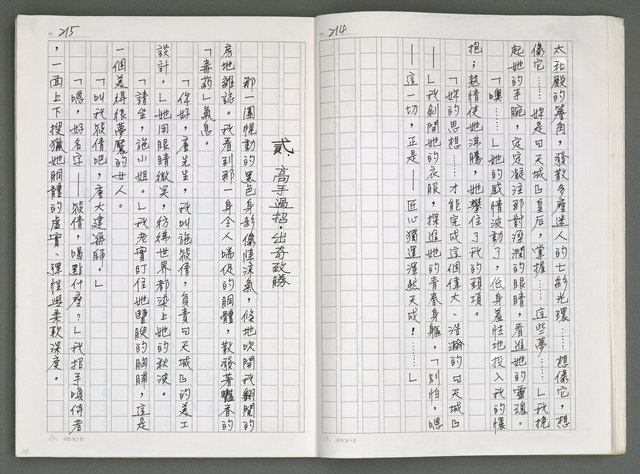 214
太和殿的簷角，發散多產迷人的士彩光環……想像它，想
像它……妳是曰天城凸皇后，掌握……這些夢……」我挽
起她的手腕，定定凝注那對溼潤的眼睛，看進她的靈魂。
「噢……」她的感情波動了，低身羞怯地投入我的懷
抱；熱情使她沸騰，她攀住了我的頸項。
「妳的思想……才能完成這個偉大、浩瀚的曰天城凸
——」我剝開她的衣服，探進她的青春身軀。「別怕，嗯
——這一切，正是——匠心獨運渾然天成！……」
215
貳．高手過招．出奇致勝
那一團慓動的黑色身影像陣涼氣，條地吹開我翻閱的
房地雜誌。我看到那一身令人喘促的胴體，散發著罌香的
「毒葯」氣息。
「你好，唐先生，我叫施筱倩，負責曰天城凸的美工
設計。」她用眼睛微笑，彷彿世界都染上她的秋波。
「請坐，施小姐。」我老實盯住她豐腴的胸脯，這是
一個美得很夢魘的女人。
「叫我筱倩吧，唐大建築師。」
「嗯，好名字——筱倩，喝點什麼？」我招手喚侍者
，一面上下搜獵她胴體的虛實、彈性與柔軟深度。
25X12
25X12